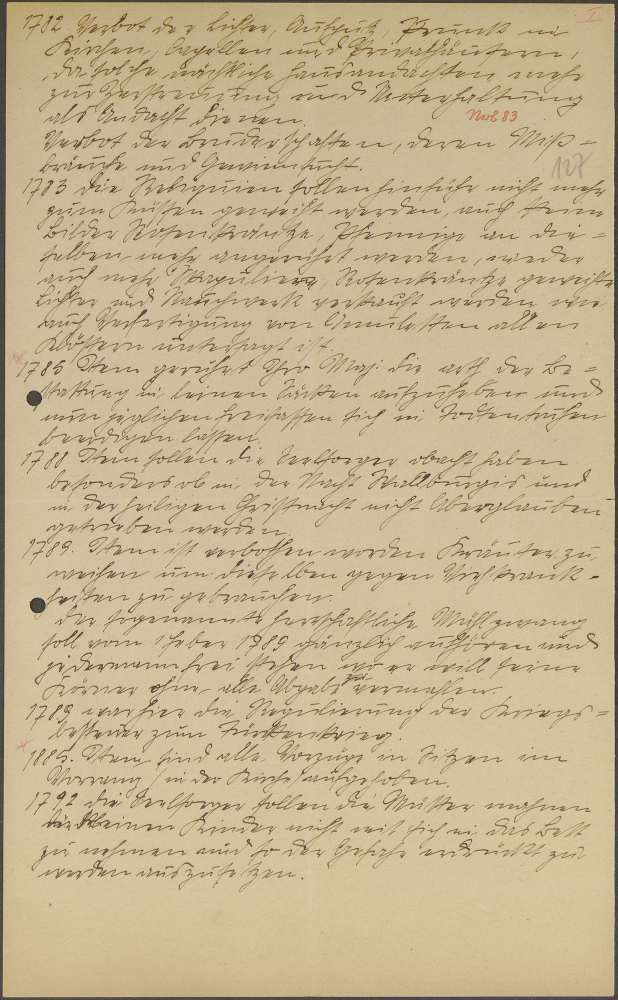 I
1782 Verbot der Lichter, Aufputz, Prunk in
Kirchen, Capellen und Privathäusern,
da solche nächtliche Hausandachten mehr
zur Zerstreuung und Unterhaltung
als Andacht dienen.
Nob 83
Verbot der Bruderschaften, deren Miß-
bräuche und Gewinnsucht.
127
1783 die Reliquien sollen hinführ nicht mehr
zum Küssen gereicht werden, auch keine
Bilder Rosenkränze, Pfennige an die-
selben mehr angerührt werden, weder
auch mehr Skapuliere, Rosenkränze geweihte
Lichter und Rauchwerk verkauft werden wie
auch Verfertigung von Amuletten allen
Klöstern untersagt ist.
1785 Item geruhet Ihro Maj: die arth der Be-
stattung in leinen Säcken aufzuheben und
nun jeglichen freilassen sich in Todtentruhen
beerdigen lassen.
1788 Item sollen die Seelsorger obacht haben
besonders ob in der Nacht Wallburgis und
in der heiligen Christnacht nicht Aberglauben
getrieben werden.
1789. Item ist verbothen worden Kräuter zu
weihen um dieselben gegen Viehkrank-
heiten zu gebrauchen.
Der sogenannte herrschaftliche Mühlzwang
soll vom 1 Feber 1789 gänzlich aufhören und
jedermann frei stehen wo er will seine
Körner ohne alle Abgabe zu vermahlen.
1789 war hier die Regulierung der Kriegs-
beisteuer zum Türkenkrieg.
1885. Item sind alle Vorzüge in Sitzen im
Vorrang (in der Kirche) aufgehoben.
1792 die Seelsorger sollen die Mütter mahnen
die kleinen Kinder nicht mit sich in das Bett
zu nehmen und so der Gefahr erdrückt zu
werden auszusetzen.